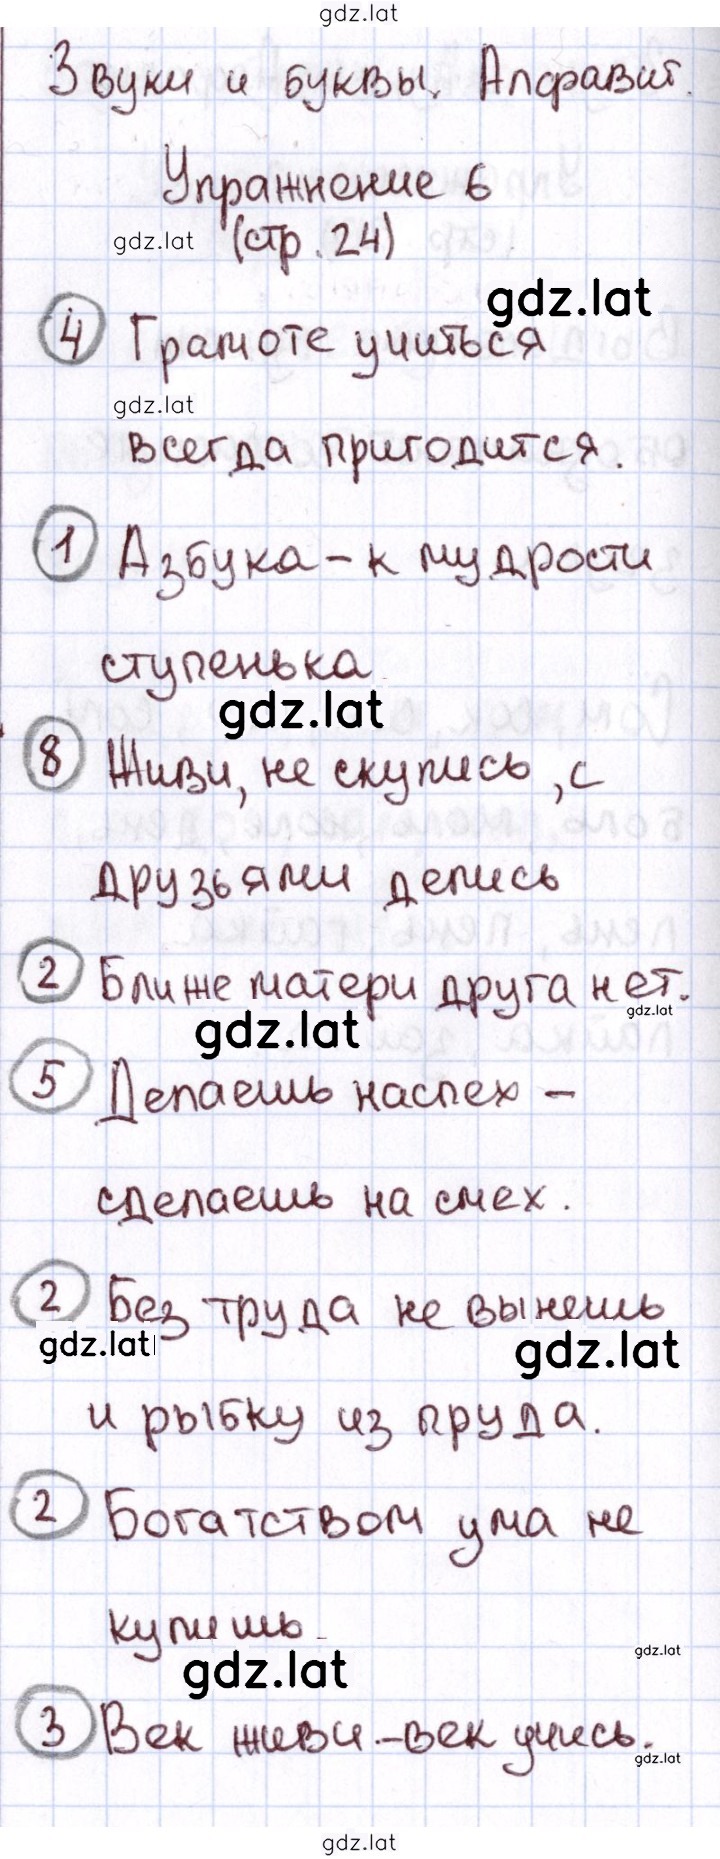 gdz.lat
Звуки и буквы. Алфавит.
Упражнение 6
gdz.lat (стр. 24)
gdz.lat
4 Грамоте учиться
gdz.lat
всегда пригодится.
1 Азбука – к мудрости
ступенька
gdz.lat
8 Живи, не скупись, с
друзьями делись
2 Ближе матери друга нет.
gdz.lat
gdz.lat
5 Делаешь наспех –
сделаешь на смех.
2 Без труда не вынешь
gdz.lat gdz.lat
и рыбку из пруда.
2 Богатством ума не
купишь.
gdz.lat
gdz.lat
3 Век живи – век учись.
gdz.lat
gdz.lat